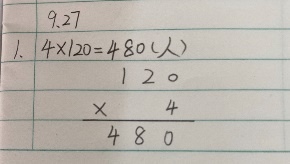 9.27
1. 4×120=480(人)
1 2 0
× 4
4 8 0